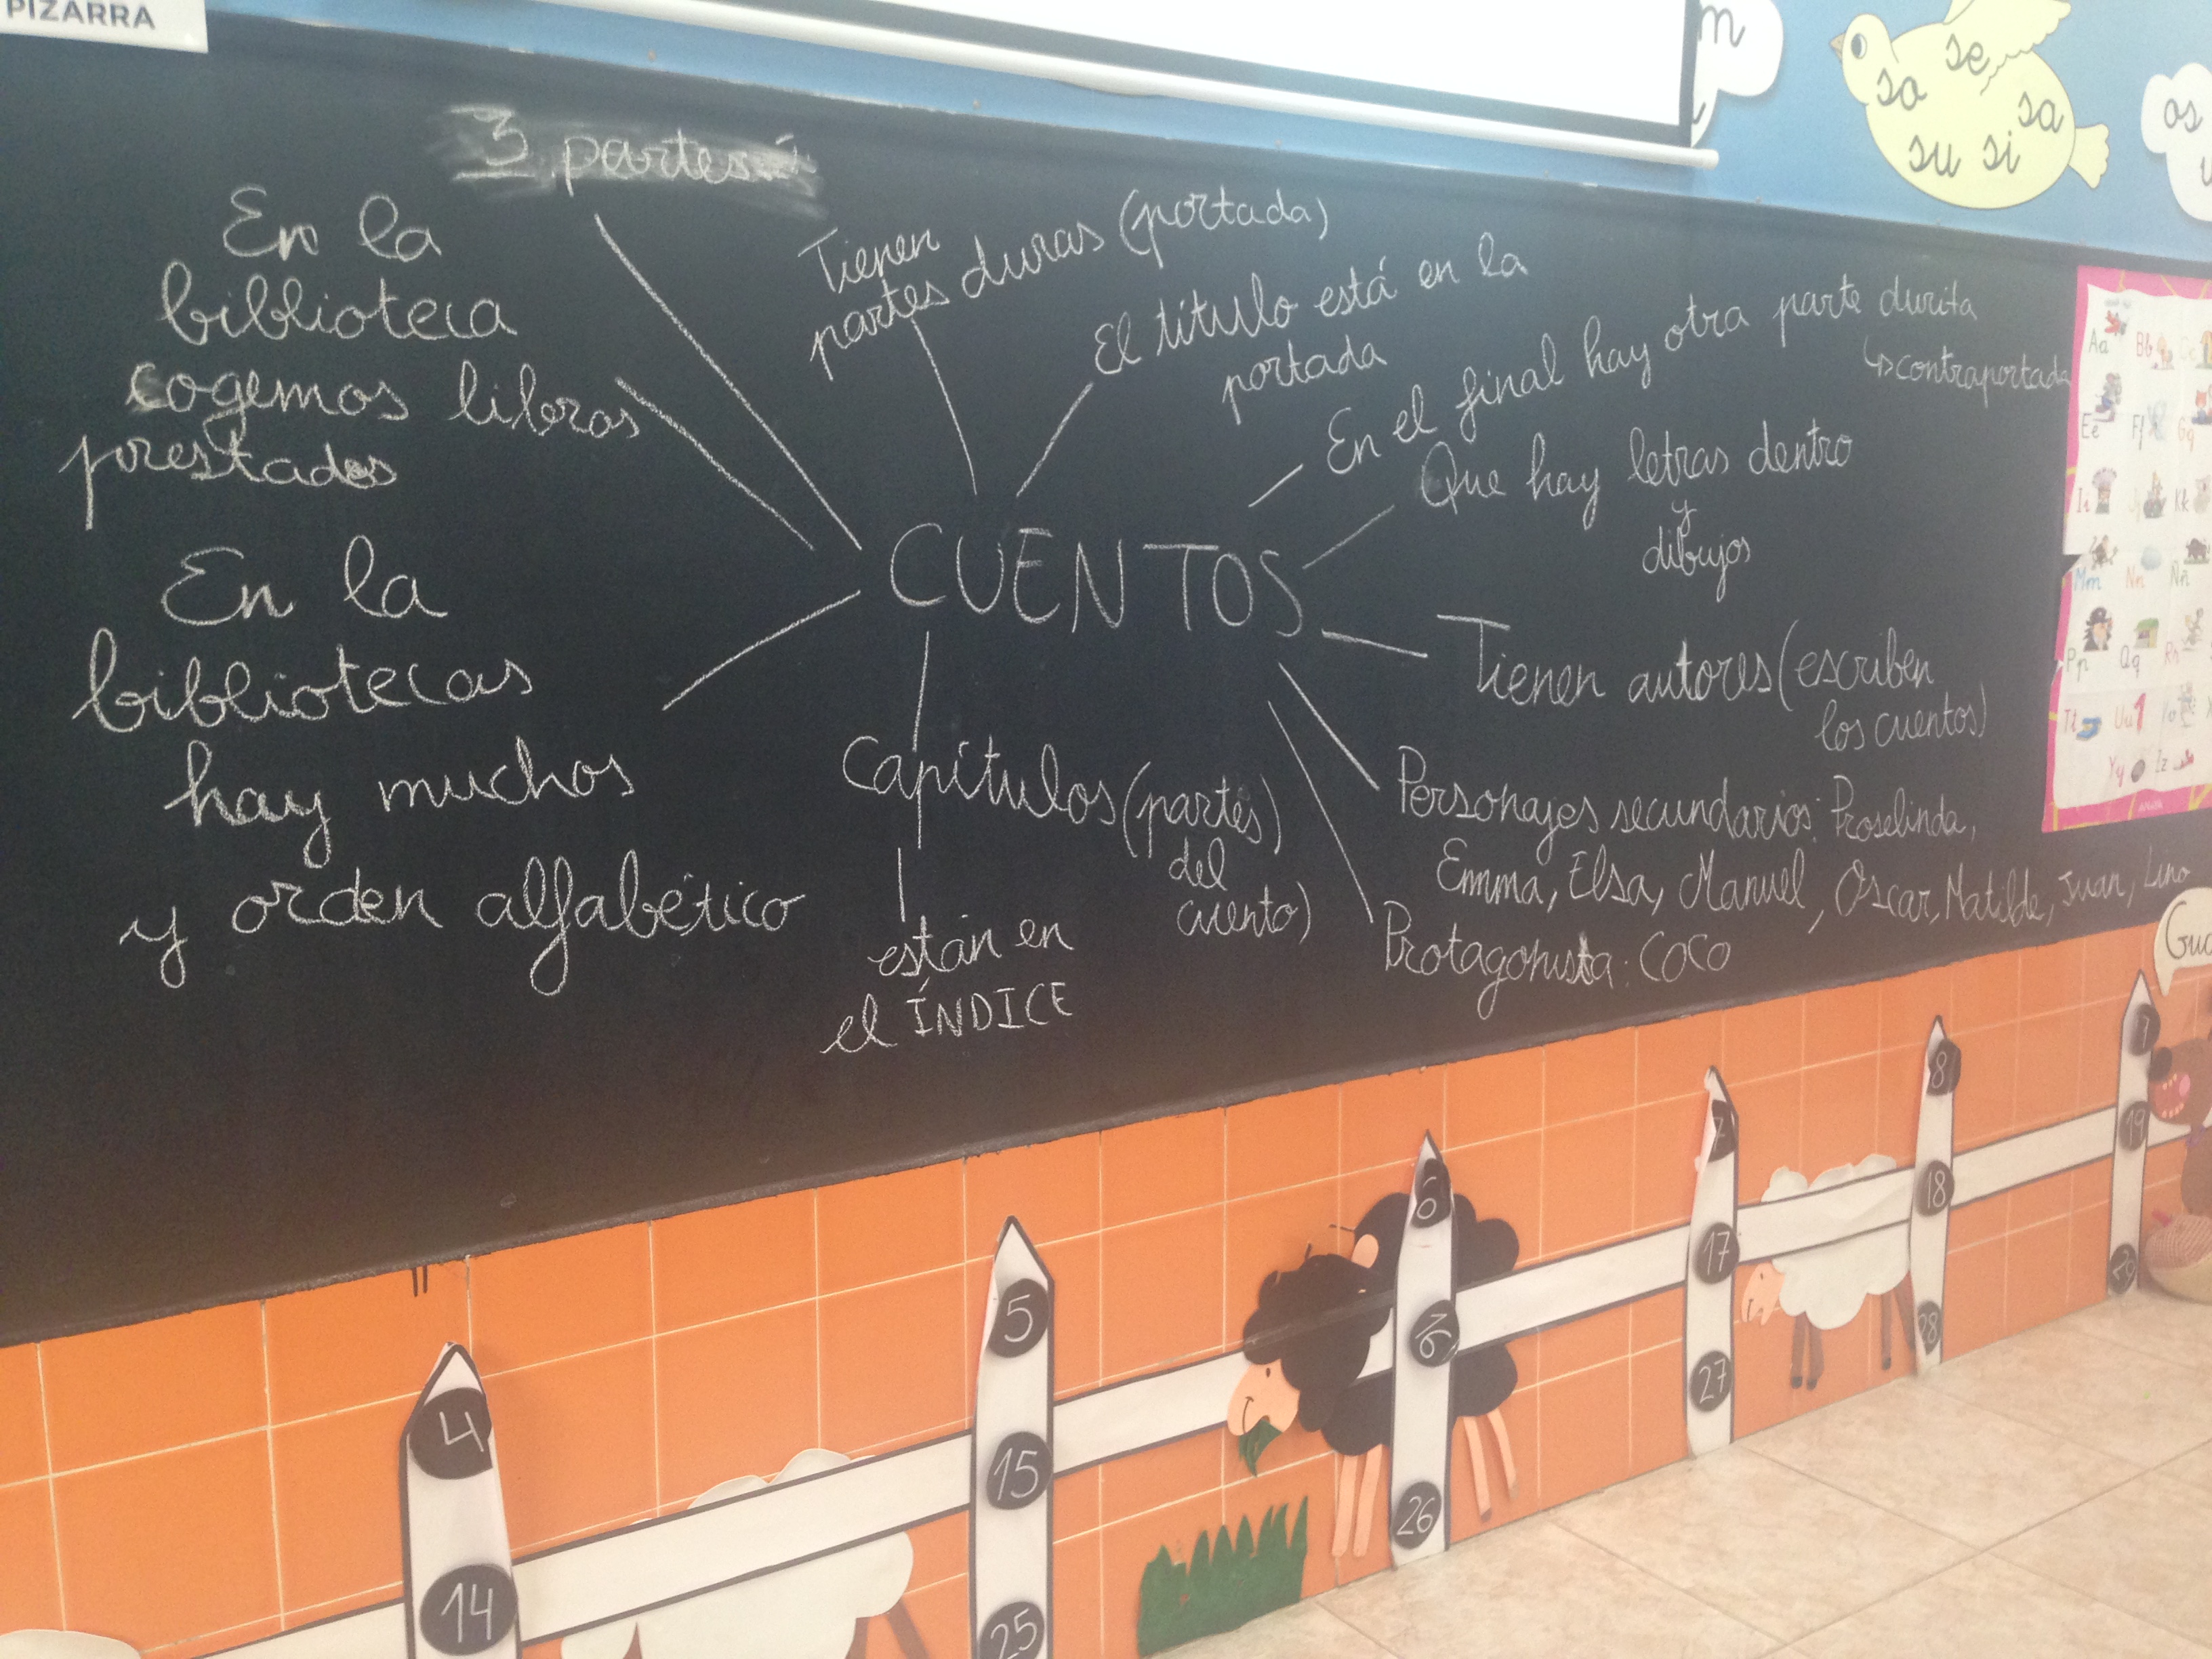 PIZARRA
3 partes
En la
biblioteca
cogemos libros
prestados
En la
bibliotecas
hay muchos
y orden alfabético
Tienen
partes duras (portada)
El título está en la
portada
En el final hay otra parte durita
↳ contraportada
Que hay letras dentro
y
dibujos
CUENTOS
Tienen autores (escriben
los cuentos)
Personajes secundarios: Roselinda,
Emma, Elsa, Manuel, Oscar, Matilde, Juan, Lino
Protagonista: COCO
Capítulos (partes)
del
cuento)
están en
el ÍNDICE
m
so se sa
su si
os
Aa Bb
Ee Ff Gg
Ii Jj Kk
Mm Nn Ññ
Pp Qq Rr
Tt Uu
Yy Zz
4
14
5
15
25
6
16
26
7
17
27
8
18
28
19